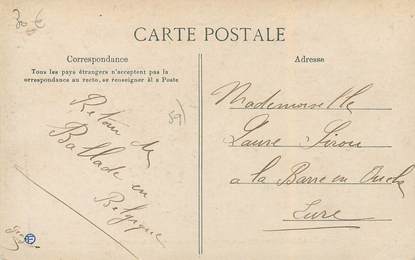 30 €
CARTE POSTALE
Correspondance
Tous les pays étrangers n'acceptent pas la
correspondance au recto, se renseigner à la Poste
Retour de
Ballade en
Belgique
Adresse
Mademoiselle
Laure Sirou
a la Barre en Ouche
Eure